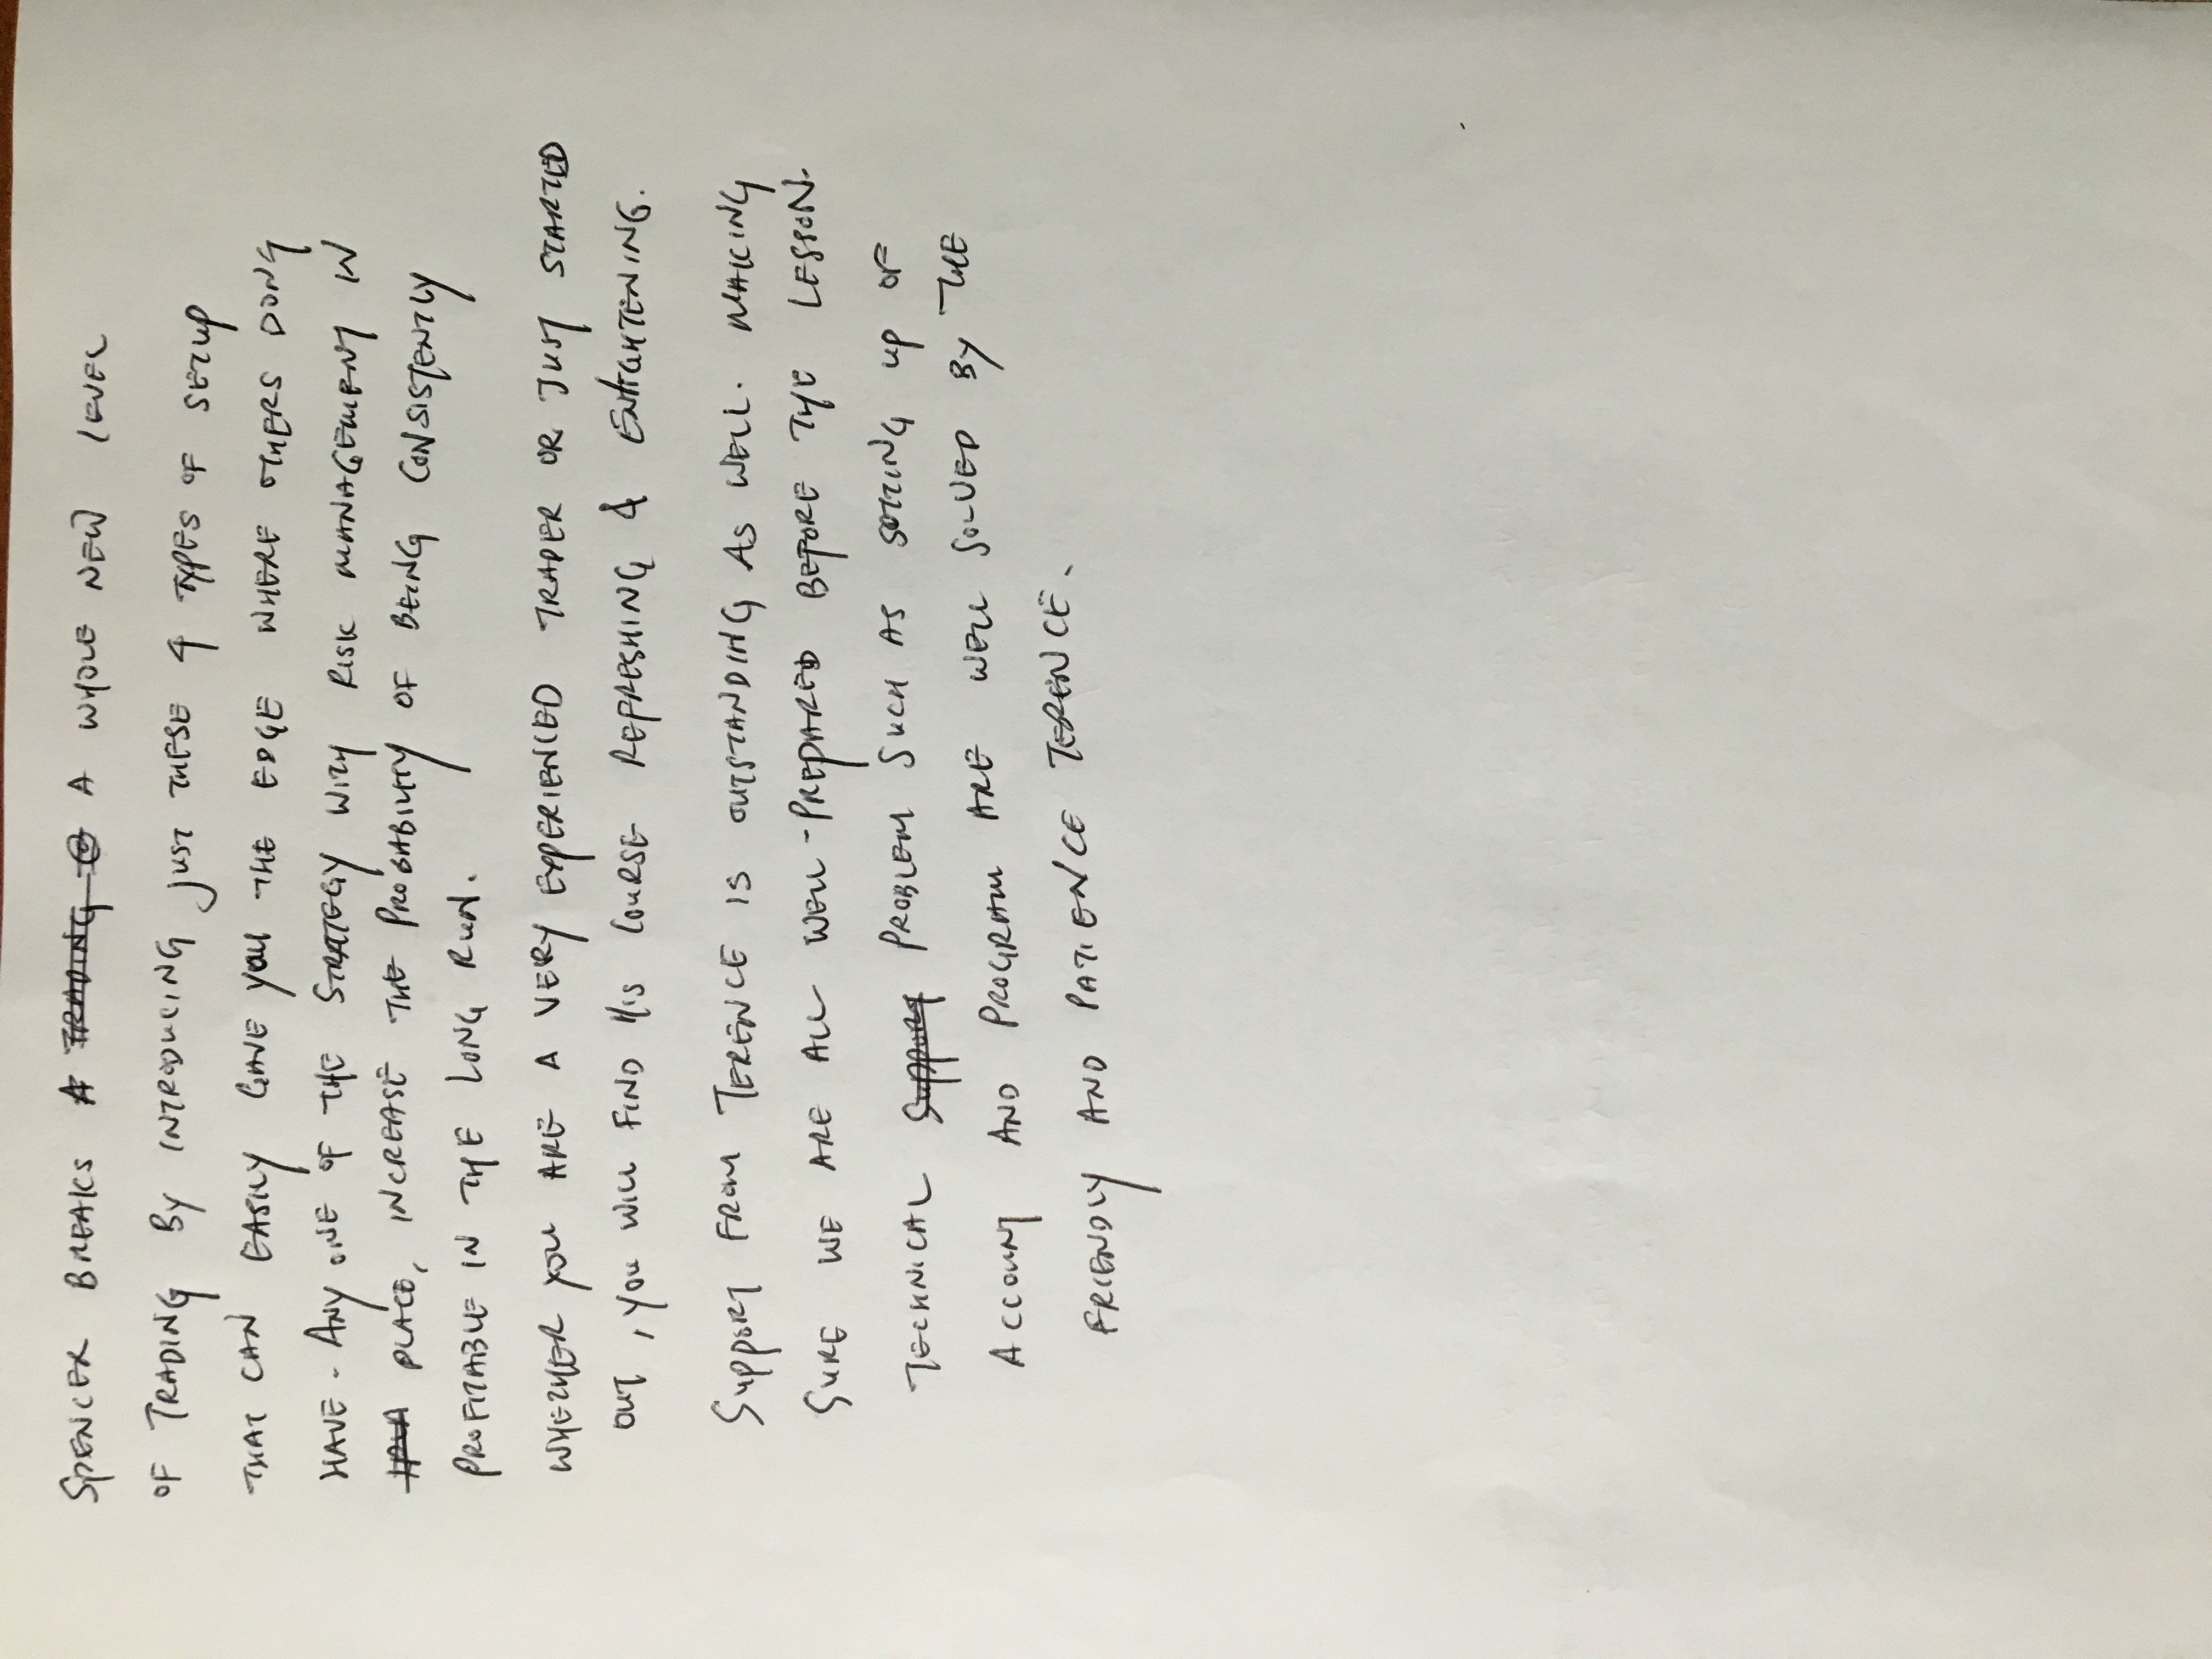 SPENCER BREAKS A TRADING A WHOLE NEW LEVEL
OF TRADING BY INTRODUCING JUST THESE 4 TYPES OF SETUP
THAT CAN EASILY GAVE YOU THE EDGE WHERE OTHERS DON'T
HAVE. ANY ONE OF THE STRATEGY WITH RISK MANAGEMENT IN
PLACED, INCREASE THE PROBABILITY OF BEING CONSISTENTLY
PROFITABLE IN THE LONG RUN.
WHETHER YOU ARE A VERY EXPERIENCED TRADER OR JUST STARTED
OUT, YOU WILL FIND HIS COURSE REFRESHING & ENLIGHTENING.
SUPPORT FROM TERENCE IS OUTSTANDING AS WELL. MAKING
SURE WE ARE ALL WELL-PREPARED BEFORE THE LESSON.
TECHNICAL SUPPORT PROBLEM SUCH AS SETTING UP OF
ACCOUNT AND PROGRAM ARE WELL SOLVED BY THE
FRIENDLY AND PATIENCE TERENCE.